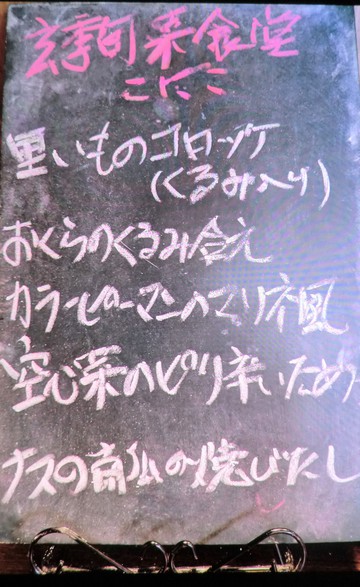 旬菜食堂
こにこ
里いものコロッケ
(くるみ入り)
おくらのくるみ合え
カラーピーマンのマリネ風
空心菜のピリ辛いため
ナスの南仏の焼びたし